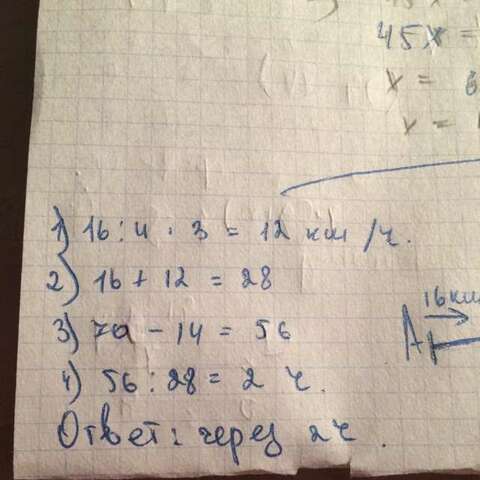 45x =
x =
x =
1) 16 : 4 · 3 = 12 км/ч.
2) 16 + 12 = 28
3) 70 - 14 = 56
4) 56 : 28 = 2 ч.
Ответ: через 2 ч.
16 км
A